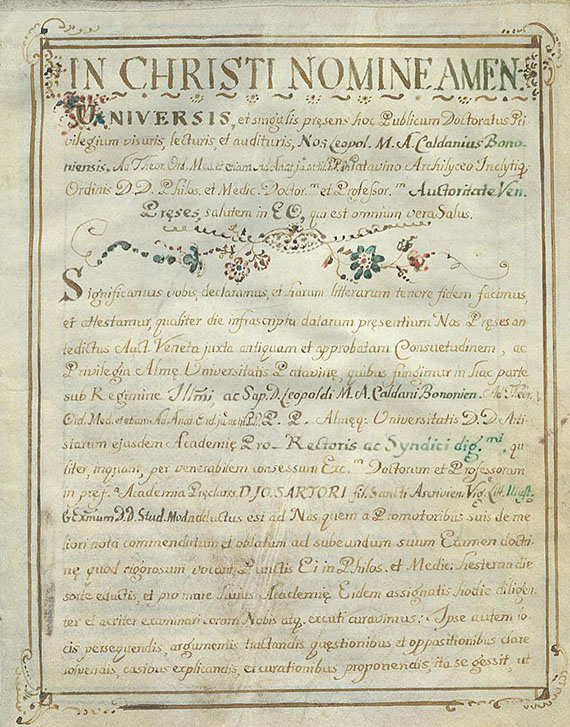 IN CHRISTI NOMINE AMEN.
UNIVERSIS, et singulis præsens hoc Publicum Doctoratus Pri
vilegium visuris, lecturis et audituris, Nos Leopol. M. A. Caldanius Bono-
niensis. Ad Theor. Ord. Med. et etiam Ad Anat. Patavino Archilyceo Inclytiq.
Ordinis D. D. Philos. et Medic. Doctor.m et Professor.m Auctoritate Ven.
Præses, salutem in EO, qui est omnium vera Salus.
Significamus vobis, declaramus, et harum litterarum tenore fidem facimus,
et attestamur, qualiter die infrascripta datarum præsentium Nos Præses an
tedictus Auct. Veneta juxta antiquam et approbatam Consuetudinem, ac
Privilegia Almę Universitatis Patavinę, quibus fungimur in hac parte
sub Regimine Illmi ac Sap. D. Leopoldi M. A. Caldani Bononien. Ad Theor.
Ord. Med. et etiam Ad Anat. P. P. Almęq: Universitatis D. D Arti-
starum ejusdem Academię Pro-Rectoris ac Syndici dig.mi, qu
liter inquam, per venerabilem consessum Exc.m Doctorum et Professorum
in pręf.a Academia Pręclariss. D. JO. SARTORI fil. Sancti
D. D. Stud. Mod. adductus est ad Nos quem a Promotoribus suis de me
liori nota commendatum et oblatum ad subeundum suum Examen doctri
nę quod rigorosum vocant, Punctis Ei in Philos. et Medic. hesterna die
sorte eductis, et pro more hujus Academię Eidem assignatis hodie diligen
ter et acriter examinari coram Nobis atq. excuti curavimus: Ipse autem lo
cis persequendis, argumentis tractandis, quęstionibus et oppositionibus clare
solvendis, casibus explicandis, et curationibus proponendis, ita se gessit, ut